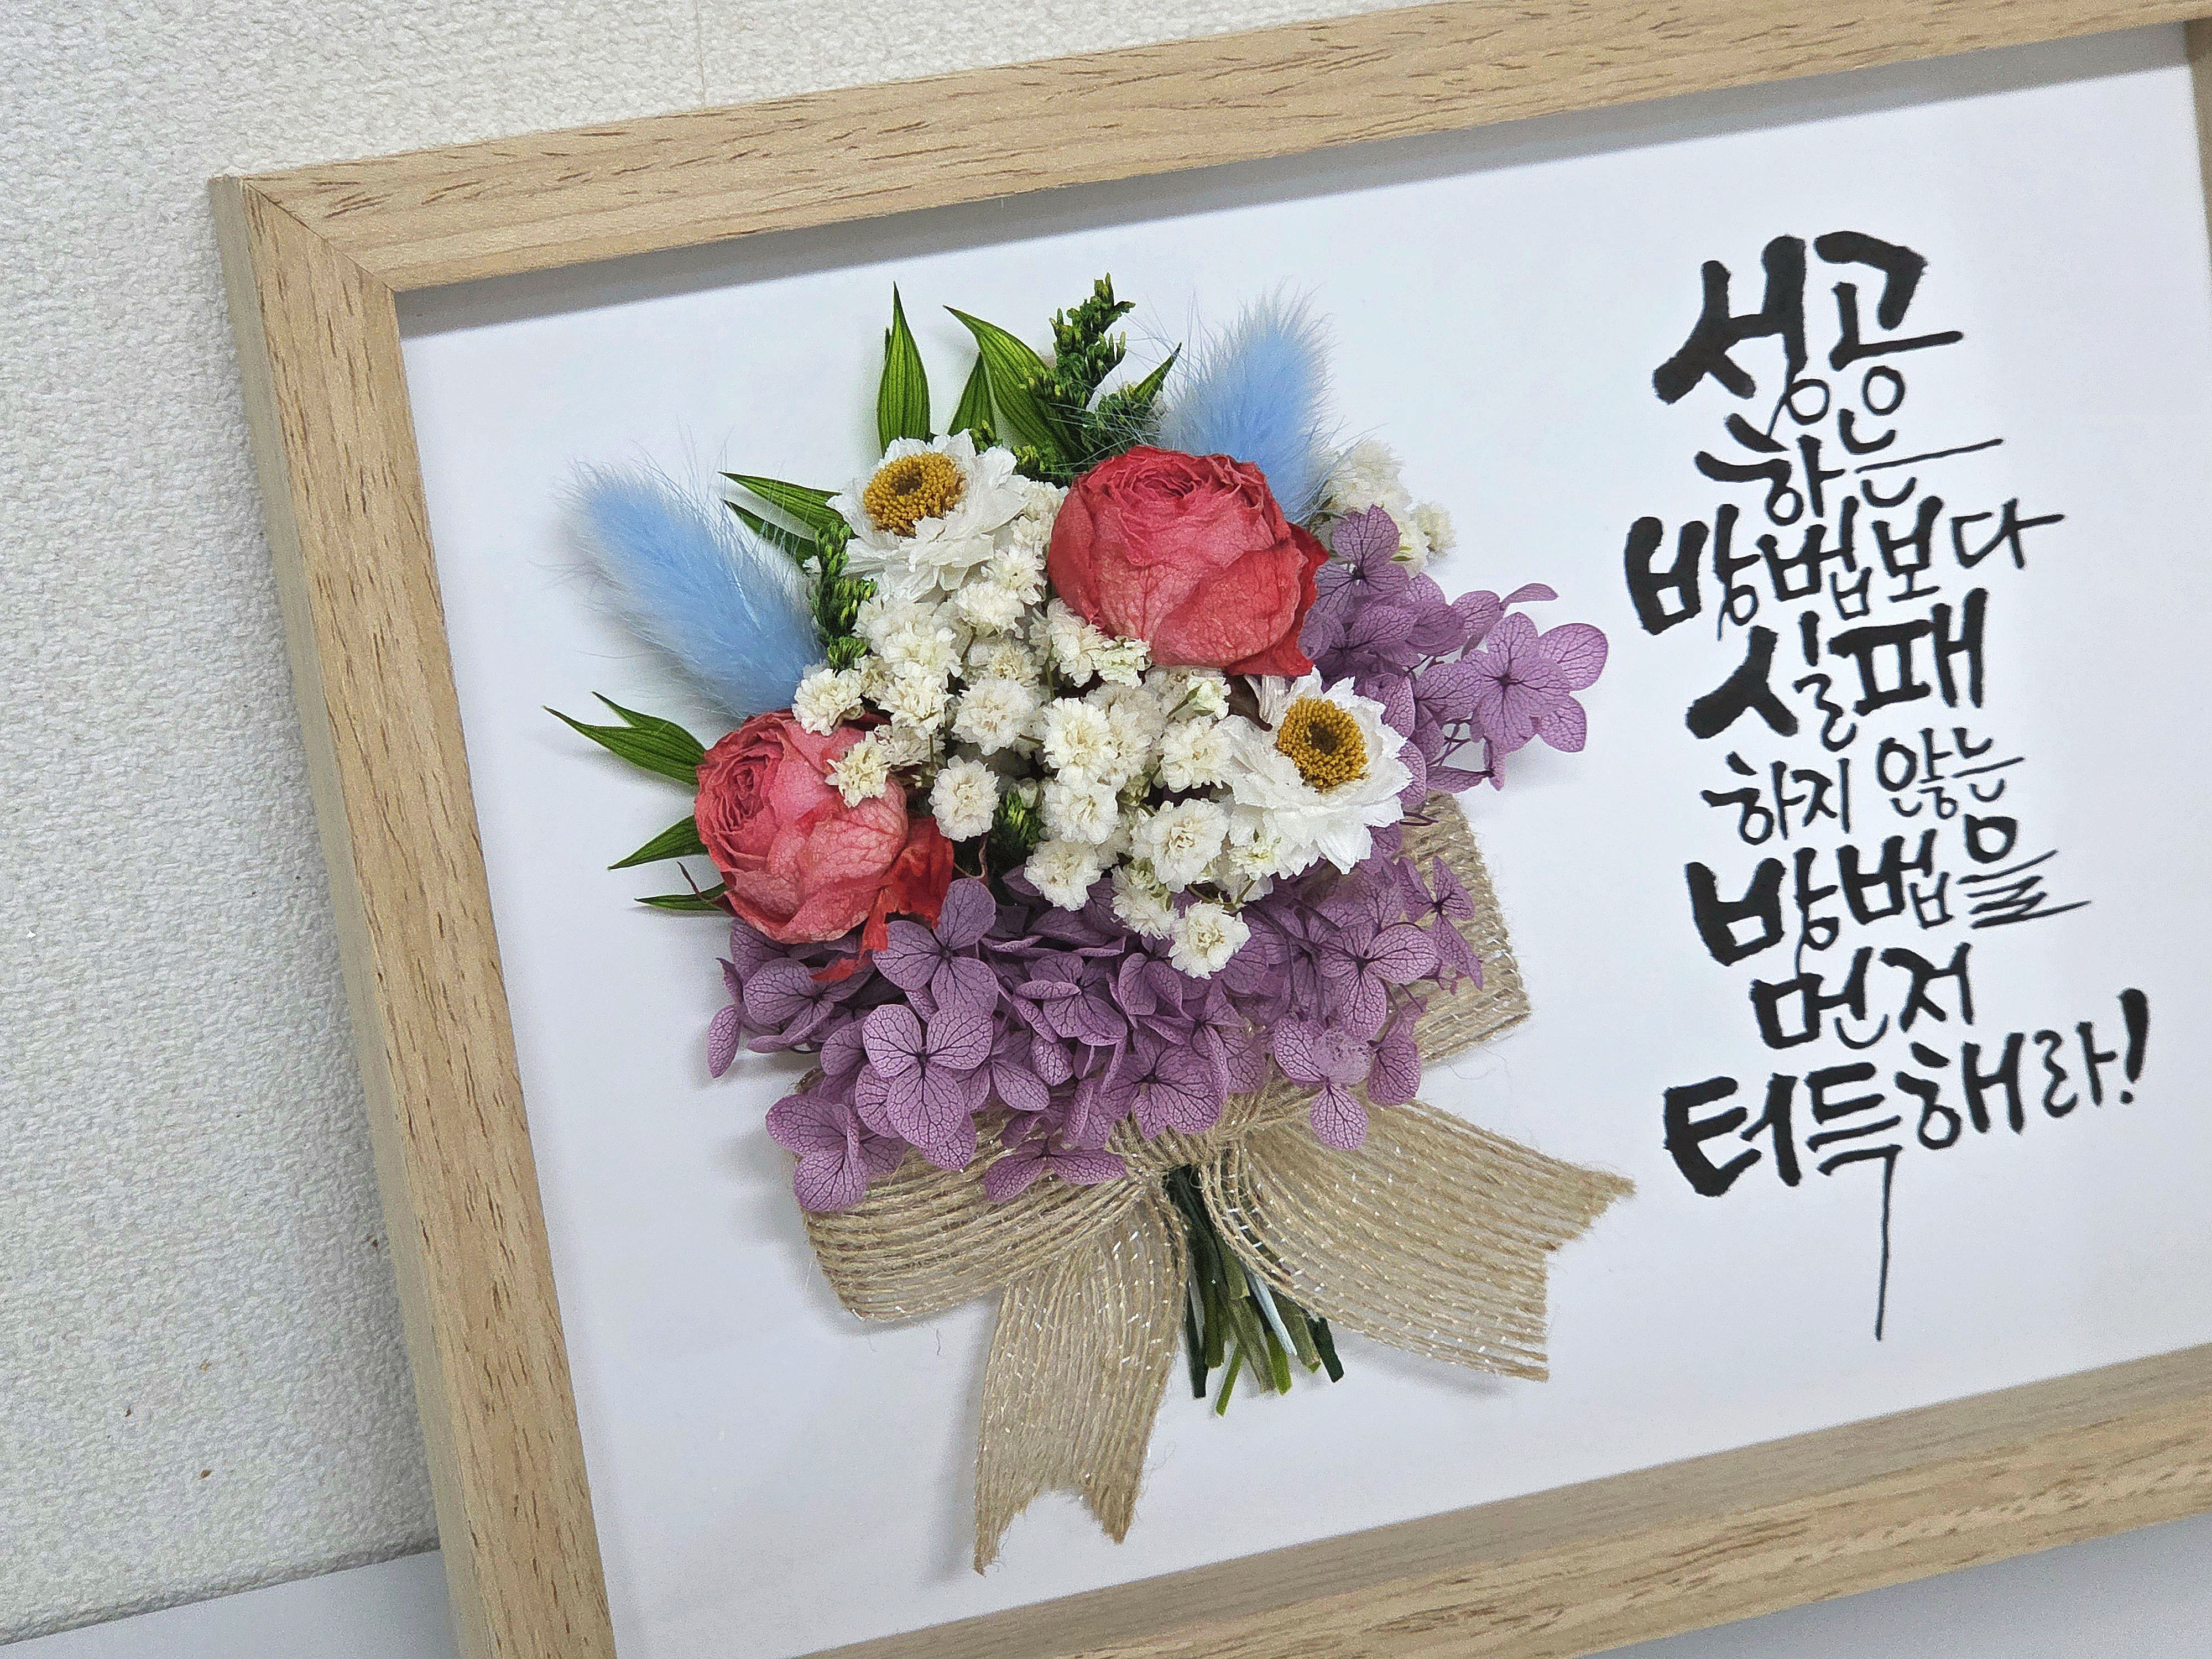 성공
하는
방법보다
실패
하지 않는
방법을
먼저
터득해라!